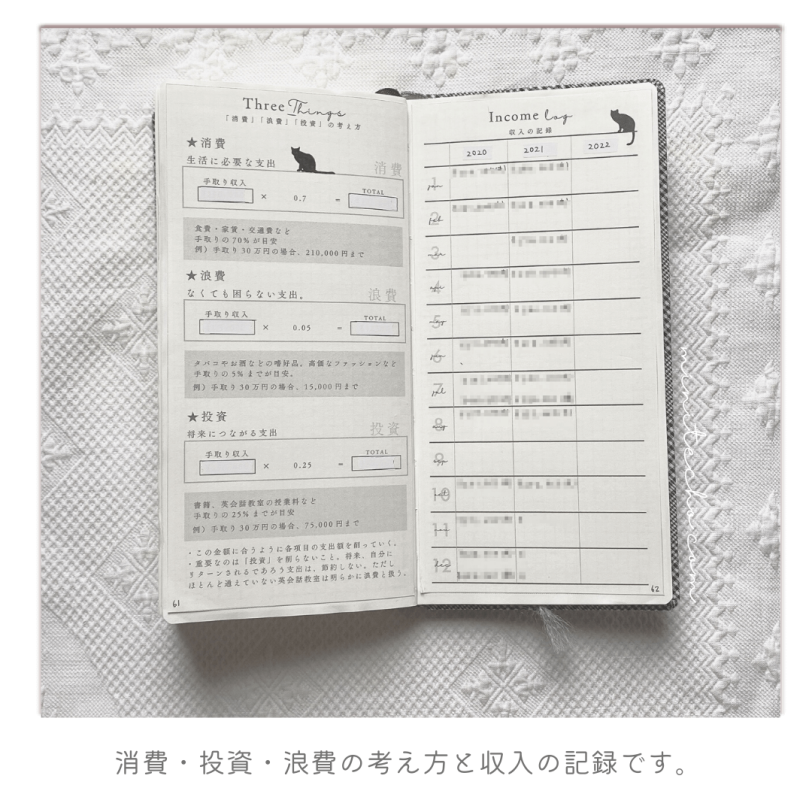 Three Things
「消費」「浪費」「投資」の考え方
★消費
生活に必要な支出
消費
手取り収入
TOTAL
× 0.7 =
食費・家賃・交通費など
手取りの70%が目安
例）手取り30万円の場合、210,000円まで
★浪費
なくても困らない支出。
浪費
手取り収入
TOTAL
× 0.05 =
タバコやお酒などの嗜好品、高価なファッションなど
手取りの5%までが目安。
例）手取り30万円の場合、15,000円まで
★投資
将来につながる支出
投資
手取り収入
TOTAL
× 0.25 =
書籍、英会話教室の授業料など
手取りの25%までが目安
例）手取り30万円の場合、75,000円まで
・この金額に合うように各項目の支出額を削っていく。
・重要なのは『投資』を削らないこと。将来、自分に
リターンされるであろう支出は、節約しない。ただし
ほとんど通えていない英会話教室は明らかに浪費と扱う。
61
Income log
収入の記録
2020 2021 2022
1
2
3
4
5
6
7
8
9
10
11
12
62
消費・投資・浪費の考え方と収入の記録です。